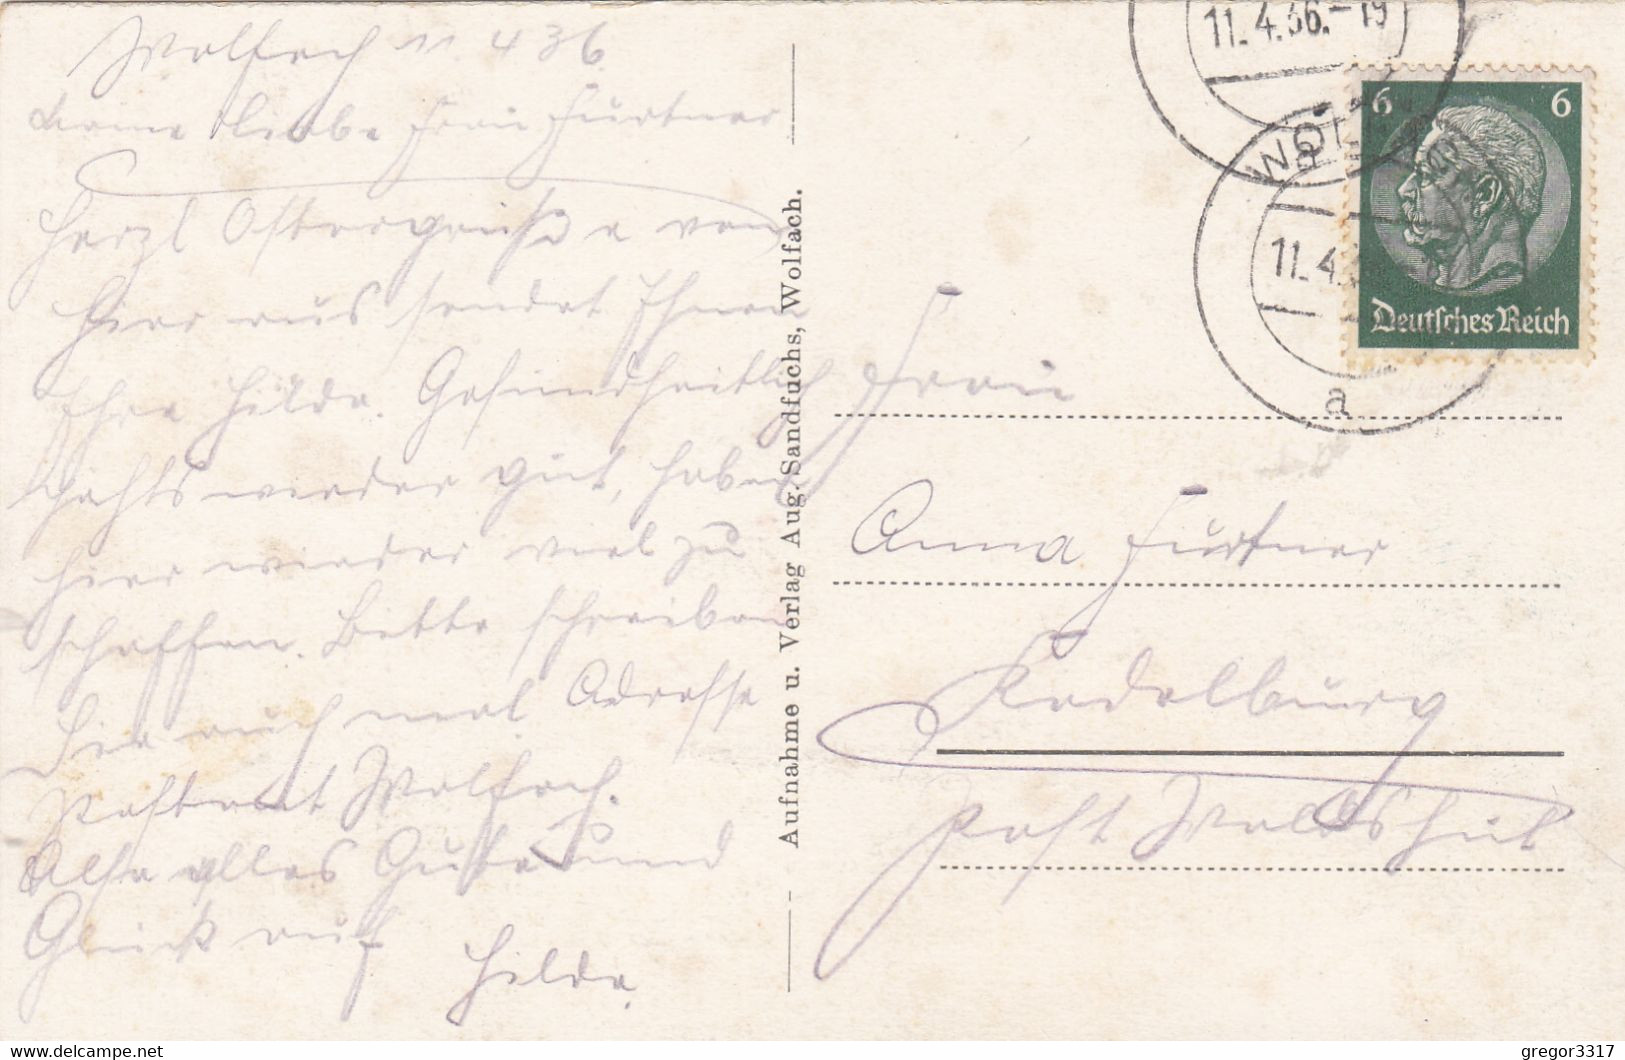 Wolfach 11. 4 36.
liebe Frau Furtner
Herzl Ostergrüße von
hier aus sendet Ihnen
Ihre Hilda. Gesundheitlich
gehts wieder gut, haben
hier wieder viel zu
schaffen. Bitte schreiben
Sie auch mal Adresse
Postamt Wolfach.
Also alles Gute und
Glück auf
Hilda.
Aufnahme u. Verlag Aug. Sandfuchs, Wolfach.
11.4.36.-19
11.4.
a
6 6
Deutsches Reich
Frau
Anna Furtner
Kadelburg
Post Waldshut
gregor3317